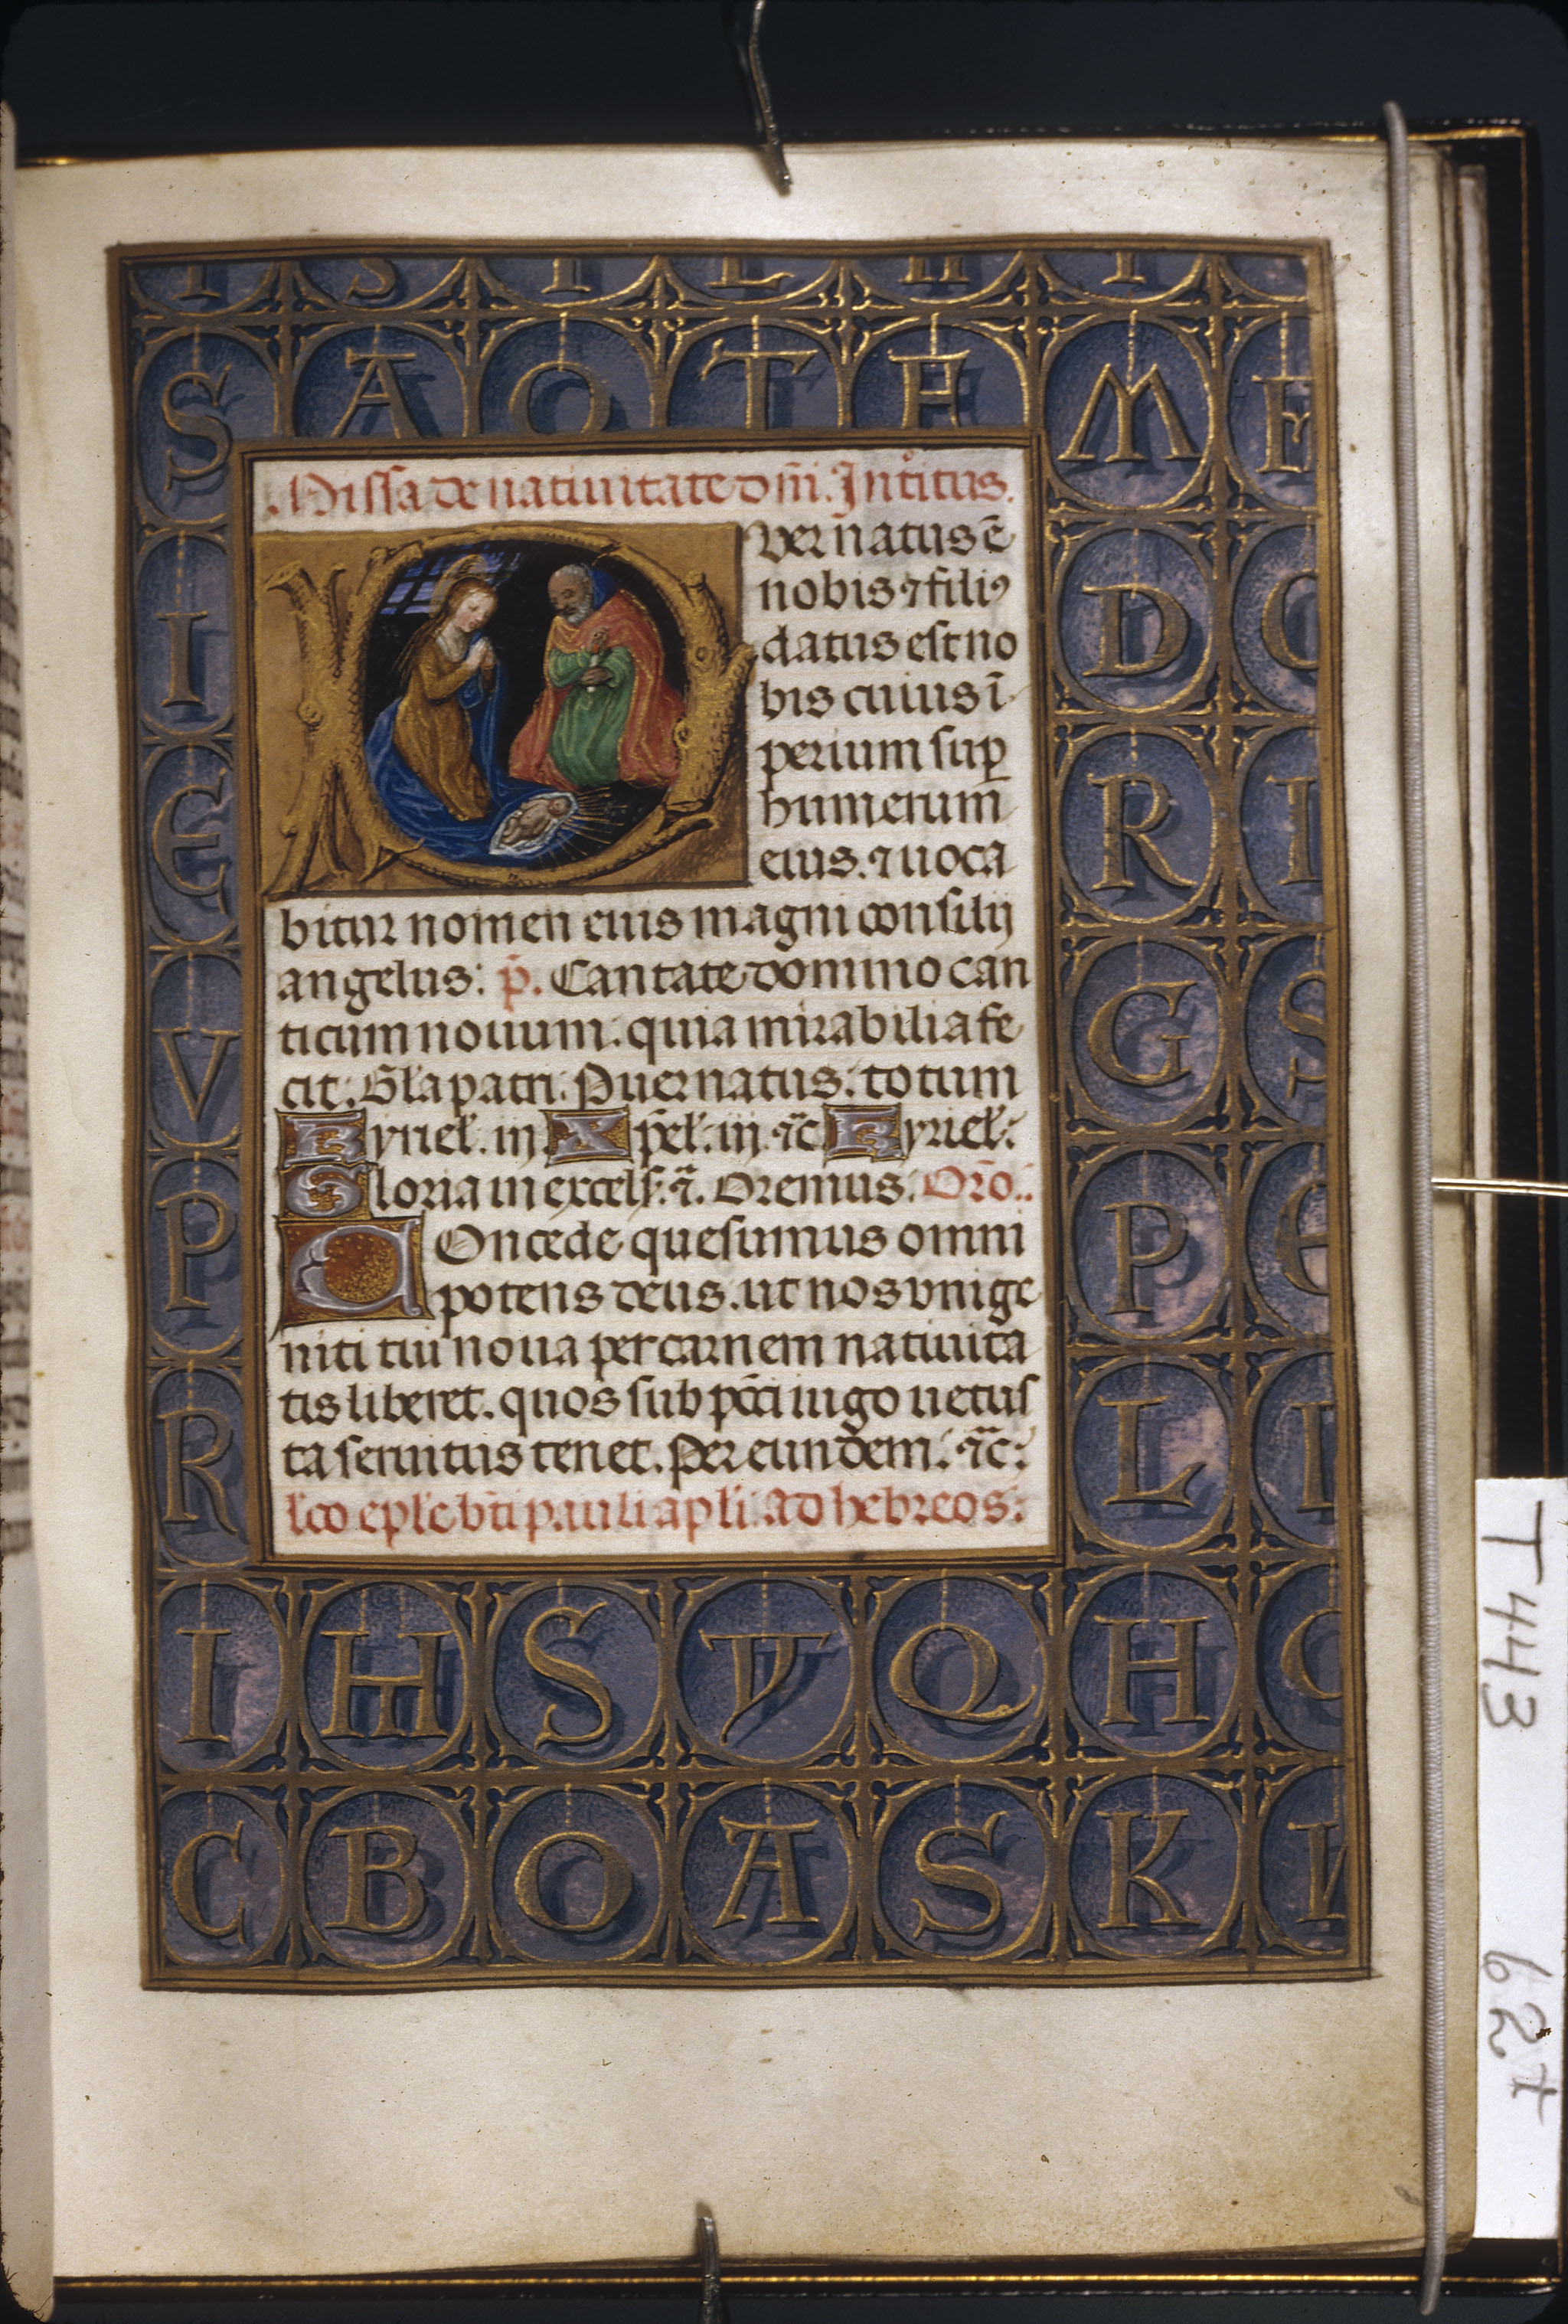 I S T L H I
S A O T H M E
Missa de natiuitate dn̄i. Intꝛoitus.
Puer natus ē
nobis ⁊ filiꝰ
datus est no
bis cuius ī
perium suꝑ
humerum
eius. ⁊ uoca
bitur nomen eius magni consilij
angelus: p̄. Cantate domino can
ticum nouum: quia mirabilia fe
cit: Gl'a patri: Puer natus: totum
Kyriel'. iij. Xp̄el'. iij. ⁊c̄ Kyriel':
Gloria in excels̄: ⁊. Oremus. Orō..
Concede quesumus omni
potens deus. ut nos vnige
niti tui noua per carnem natiuita
tis liberet. quos sub pcc̄i iugo uetus
ta seruitus tenet. Per eundem: ⁊c̄:
l'co epl'e bt̄i pauli apl'i. Ad hebreos:
I
E
V
P
R
D
R
G
P
L
C
I
S
E
I
I H S V Q H
C B O A S K
T443
627